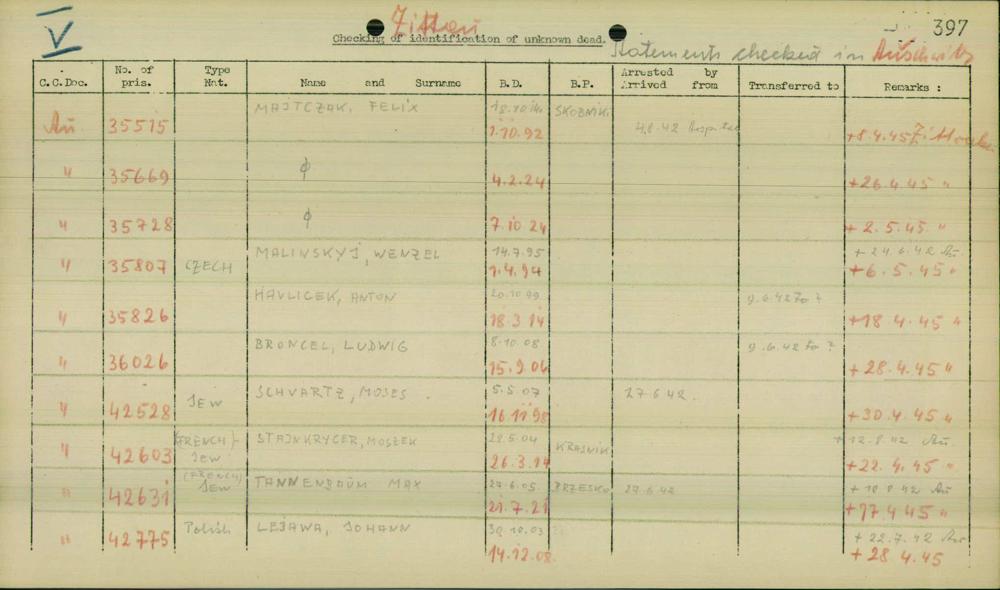 V Zittau 397
Checking of identification of unknown dead. Statements checked in Auschwitz
C.C.Doc. No. of pris. Type Nat. Name and Surname B.D. B.P. Arrested by Arrived from Transferred to Remarks :
MAJTCZAK, FELIX SKOBNIKI
Au. 35515 1.10.92 4.8.42 Hospital +8.4.45 Zittau
" 35669 φ 4.2.24 +26.4.45 "
" 35728 φ 7.10.24 + 2.5.45 "
MALINSKYJ, WENZEL 14.7.95 + 24.6.42 Au
" 35807 CZECH 1.4.94 +6.5.45 "
HAVLICEK, ANTON 20.10.99 9.6.42 Fo ?
" 35826 18.3.14 +18.4.45 "
BRONCEL, LUDWIG 8.10.08 9.6.42 Fo ?
" 36026 15.9.06 +28.4.45 "
SCHVARTZ, MOSES 5.5.07 27.6.42.
" 42528 JEW 16.11.98 +30.4.45 "
(FRENCH) STAJNKRYCER, MOSZEK 28.5.04 KRASNIK + 12.8.42 Au.
" 42603 Jew 26.3.14 +22.4.45 "
(FRENCH) TANNENBAUM MAX 27.6.05 BRZESKO 27.6.42 + 18 8 42 Au
" 42631 JEW 21.7.21 +17.4.45 "
Polish LEJAWA, JOHANN 30.10.03 + 22.7.42 Au
" 42775 14.12.08. + 28.4.45